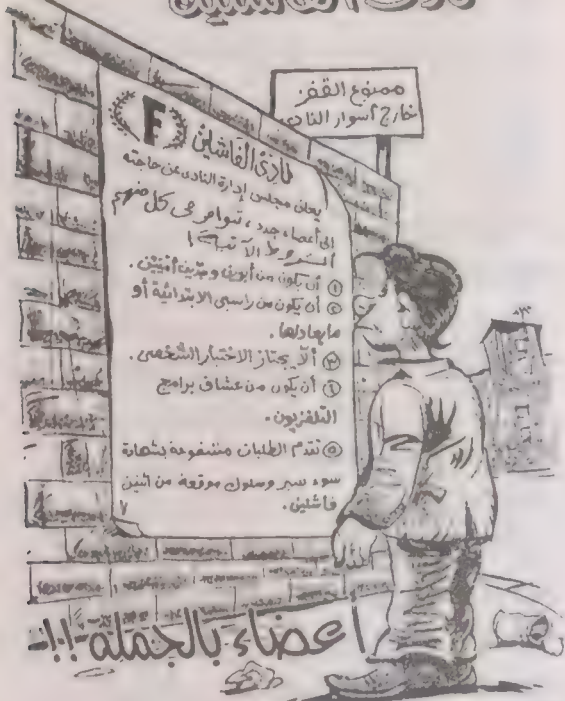 نادى الفاشلين
ممنوع القفز
خارج أسوار النادى
F
نادى الفاشلين
يعلن مجلس إدارة النادى عن حاجته
إلى أعضاء جدد ، تتوافر فى كل منهم
الشروط الآتية :
١ أن يكون من أبوين وجدين أميين .
٢ أن يكون من راسبى الابتدائية أو
مايعادلها .
٣ ألا يجتاز الاختبار الشخصى .
٤ أن يكون من عشاق برامج
التلفزيون .
٥ تقدم الطلبات مشفوعة بشهادة
سوء سير وسلوك موقعة من اثنين
فاشلين .
أعضاء بالجملة !!